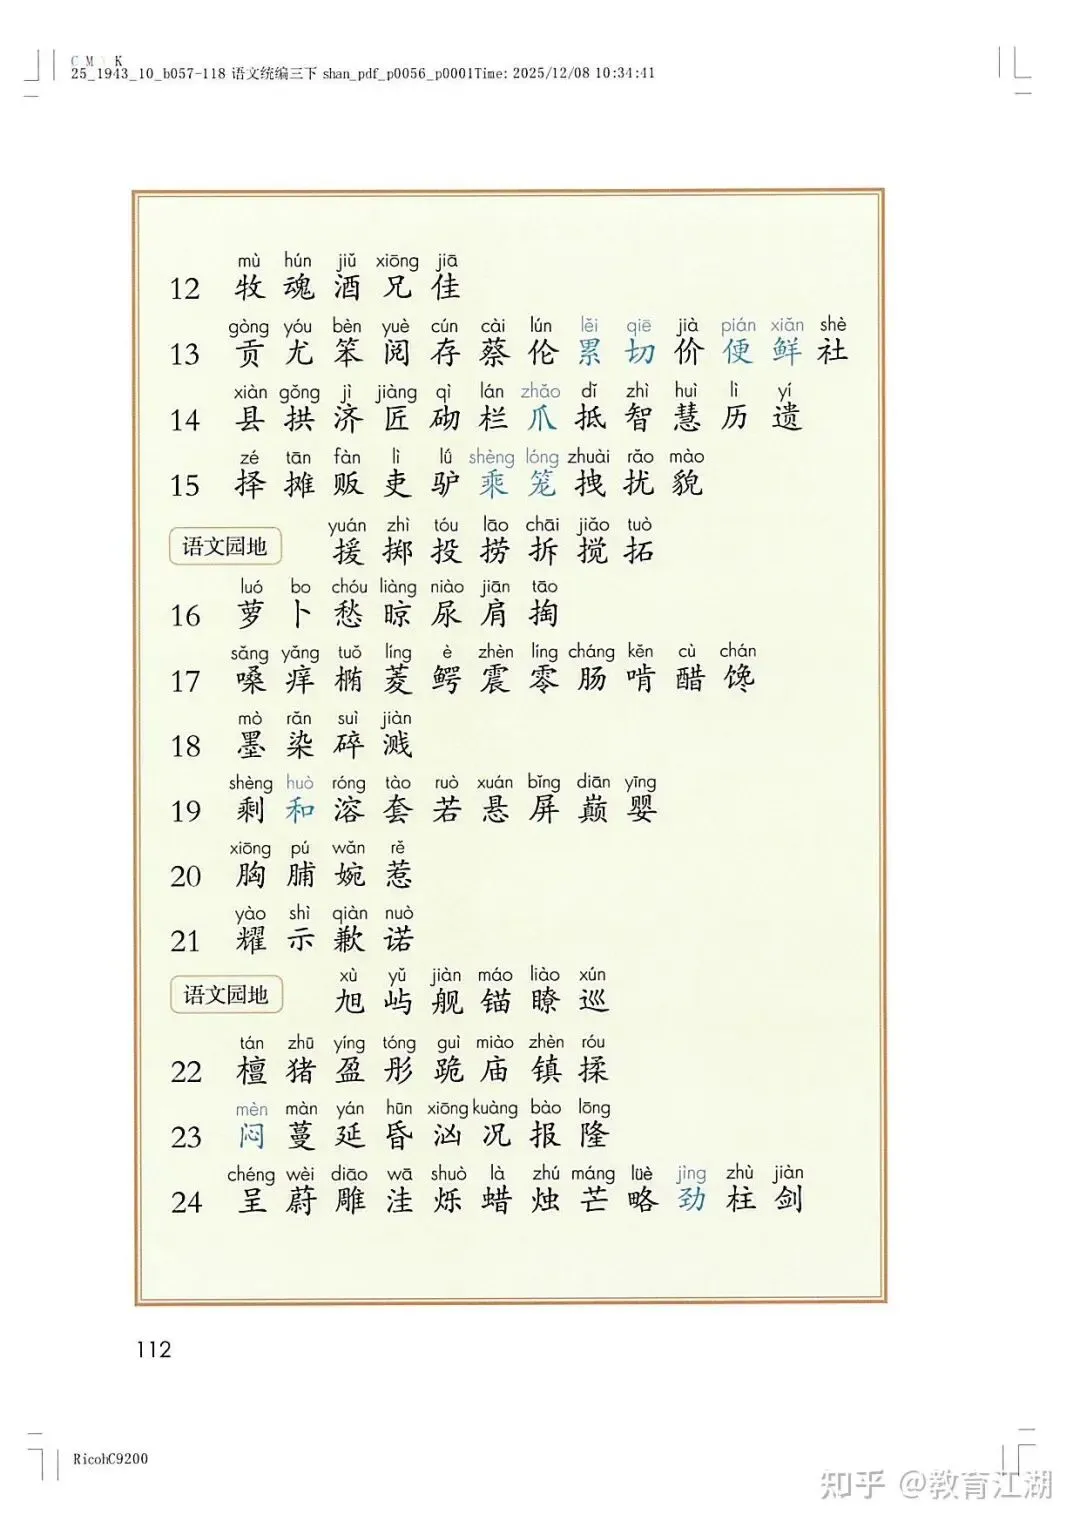 C M Y K
25_1943_10_b057-118 语文统编三下 shan_pdf_p0056_p0001Time: 2025/12/08 10:34:41
mù hún jiǔ xiōng jiā
12 牧 魂 酒 兄 佳
gòng yóu bèn yuè cún cài lún lěi qiē jià pián xiān shè
13 贡 尤 笨 阅 存 蔡 伦 累 切 价 便 鲜 社
xiàn gǒng jì jiàng qì lán zhǎo dǐ zhì huì lì yí
14 县 拱 济 匠 砌 栏 爪 抵 智 慧 历 遗
zé tān fàn lì lǘ shèng lóng zhuài rǎo mào
15 择 摊 贩 吏 驴 乘 笼 拽 扰 貌
yuán zhì tóu lāo chāi jiǎo tuò
语文园地 援 掷 投 捞 拆 搅 拓
luó bo chóu liàng niào jiān tāo
16 萝 卜 愁 晾 尿 肩 掏
sǎng yǎng tuǒ líng è zhèn líng cháng kěn cù chán
17 嗓 痒 椭 菱 鳄 震 零 肠 啃 醋 馋
mò rǎn suì jiàn
18 墨 染 碎 溅
shèng huò róng tào ruò xuán bǐng diān yīng
19 剩 和 溶 套 若 悬 屏 巅 婴
xiōng pú wǎn rě
20 胸 脯 婉 惹
yào shì qiàn nuò
21 耀 示 歉 诺
xù yǔ jiàn máo liào xún
语文园地 旭 屿 舰 锚 瞭 巡
tán zhū yíng tóng guì miào zhèn róu
22 檀 猪 盈 彤 跪 庙 镇 揉
mèn màn yán hūn xiōng kuàng bào lōng
23 闷 蔓 延 昏 汹 况 报 隆
chéng wèi diāo wā shuò là zhú máng lüè jìng zhù jiàn
24 呈 蔚 雕 洼 烁 蜡 烛 芒 略 劲 柱 剑
112
RicohC9200
知乎 @教育江湖